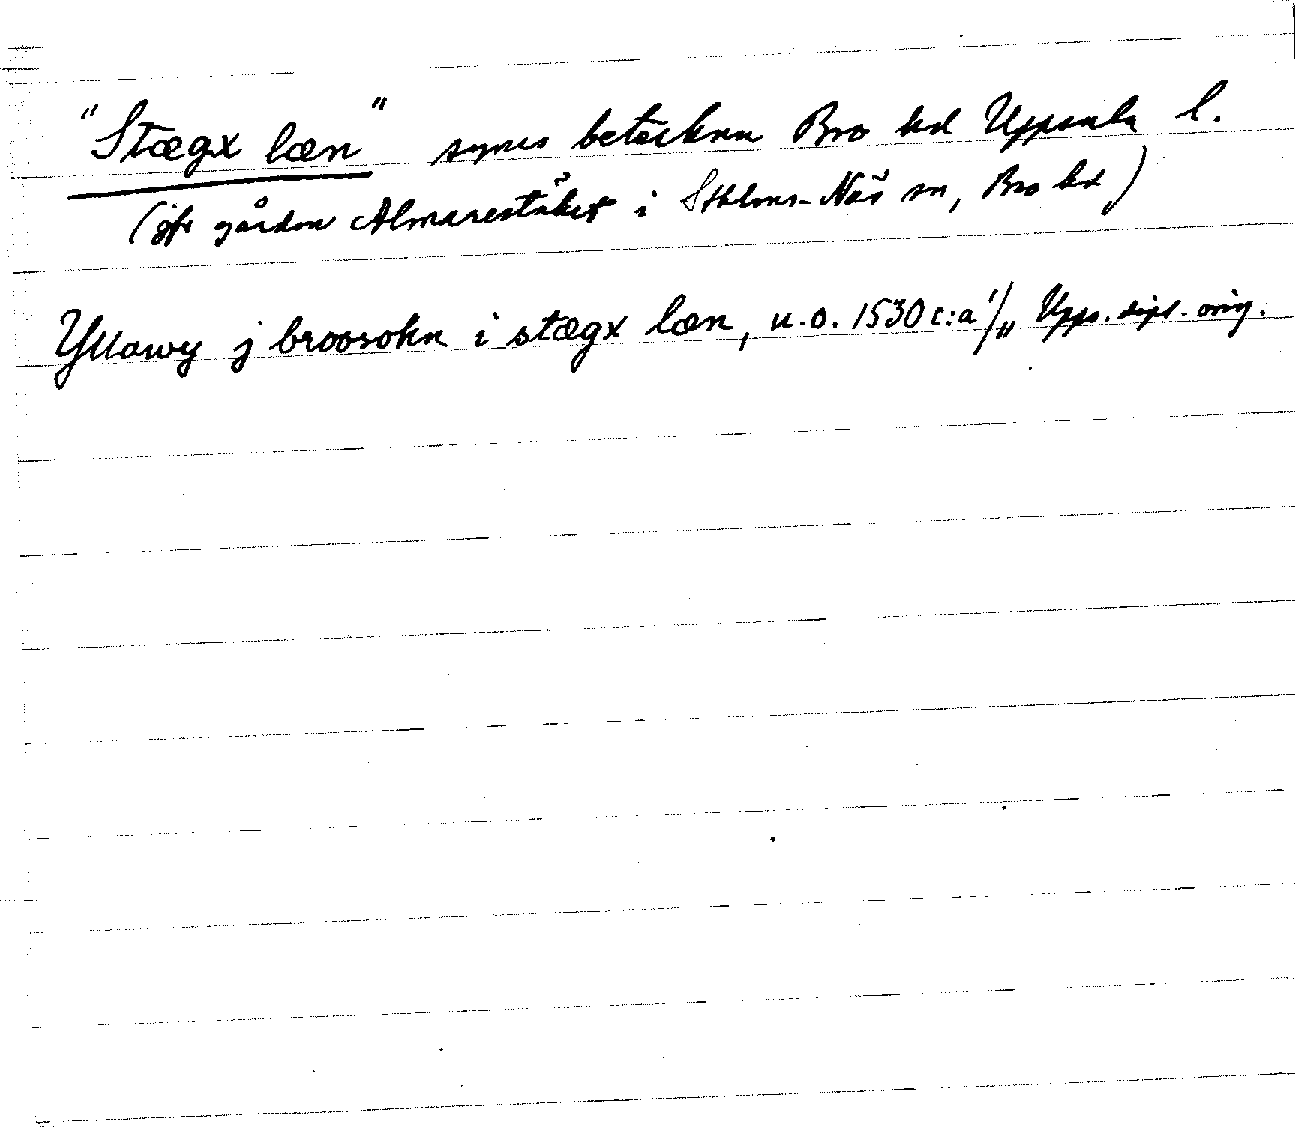 "Stægx læn" synes beteckna Bro hd Uppsala l.
(jfr gården Almarestäket i Sthlms-Näs sn, Bro hd)
Yllowy j broosokn i stægx læn, u.o. 1530 c:a /„ Upps. dipl. orig.